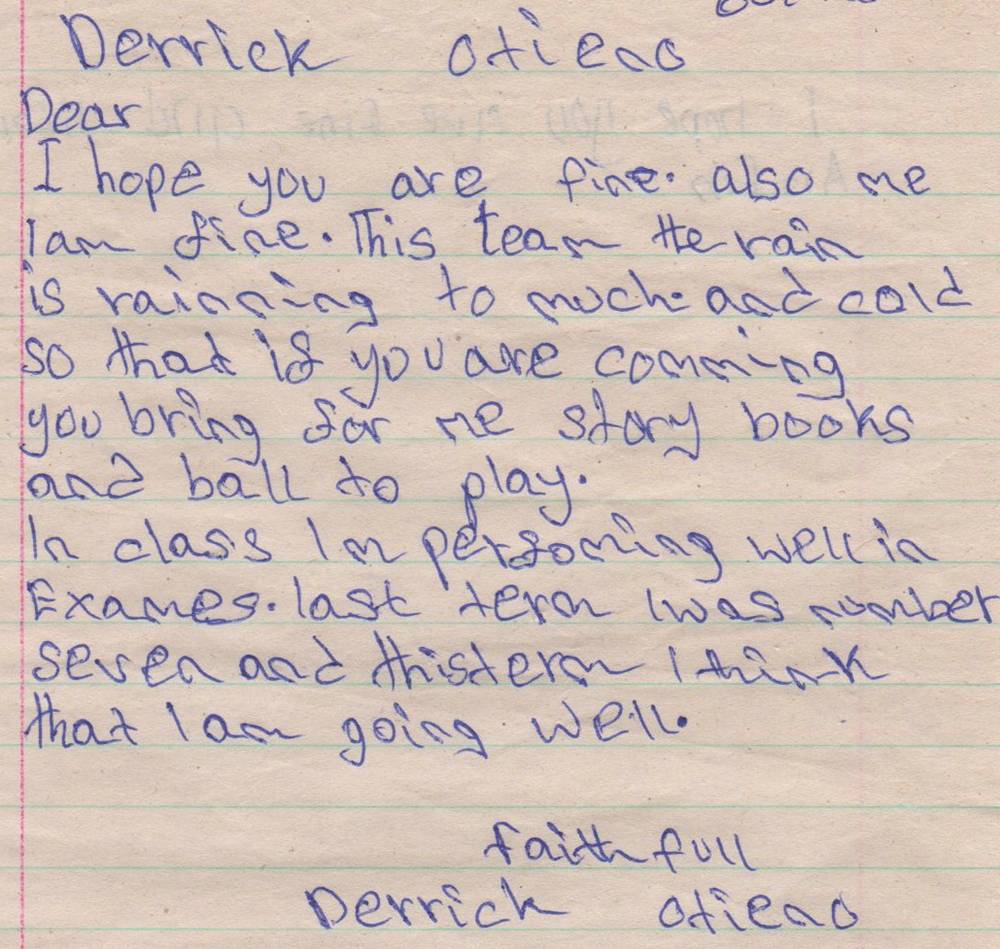 Derrick Otieno
Dear
I hope you are fine. also me
I am fine. This team the rain
is rainning to much. and cold
so that if you are comming
you bring for me story books
and ball to play.
In class Im persoming well in
Exames. last term I was number
seven and this term I think
that I am going well.
faith full
Derrick Otieno